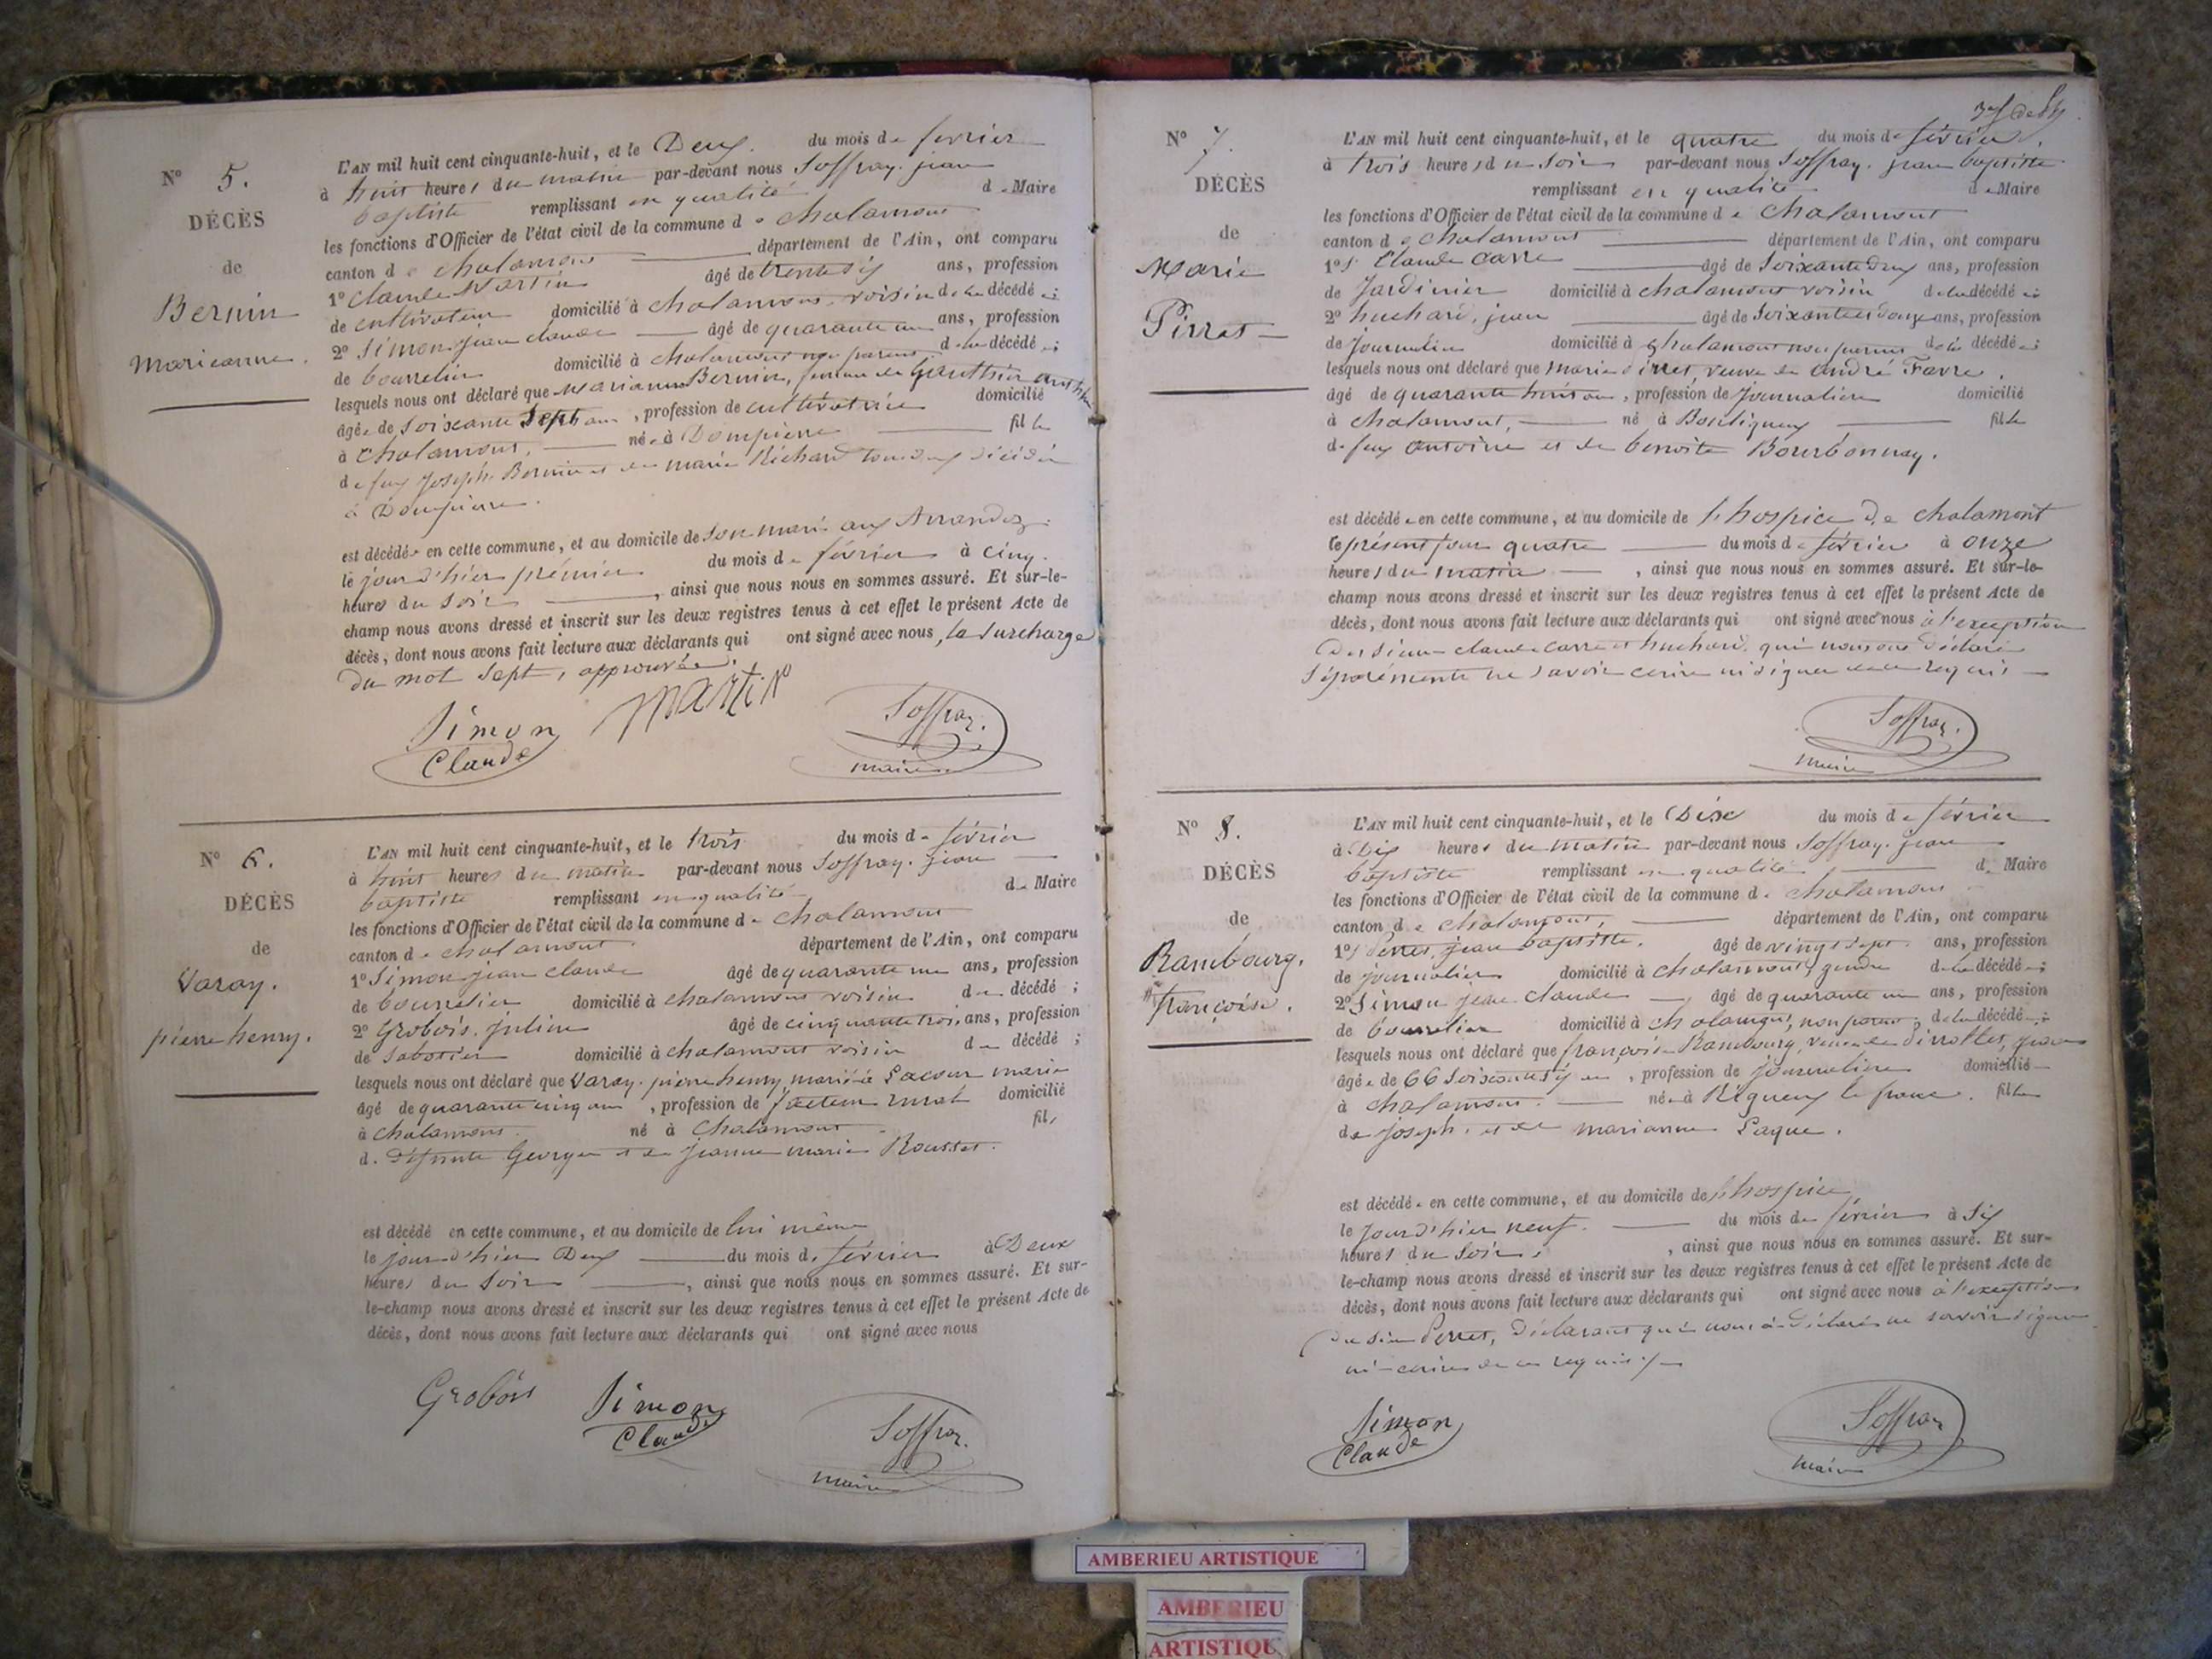 N° 5.
DÉCÈS
de
Bernin
marieanne.
L'AN mil huit cent cinquante-huit, et le Deux. du mois de fevrier
à huit heures du matin par-devant nous Soffray. jean
baptiste remplissant en qualité de Maire
les fonctions d'Officier de l'état civil de la commune de chalamont
canton de chalamont département de l'Ain, ont comparu
1° Claude Martin âgé de trente six ans, profession
de cultivateur domicilié à chalamont, voisin de la décédée;
2° Simon jean claude âgé de quarante un ans, profession
de bourrelier domicilié à chalamont non parent de la décédée;
lesquels nous ont déclaré que Marianne Bernin, femme de Gauthier
âgée de Soixante Sept ans, profession de cultivatrice domicilié
à Chalamont, née à Dompierre fille
de feu Joseph Bernin et de marie Richard tous deux décédés
à Dompierre.
est décédée en cette commune, et au domicile de Son mari aux
le jour d'hier prémier du mois de février à cinq
heures du Soir, ainsi que nous nous en sommes assuré. Et sur-le-
champ nous avons dressé et inscrit sur les deux registres tenus à cet effet le présent Acte de
décès, dont nous avons fait lecture aux déclarants qui ont signé avec nous, la surcharge
du mot Sept, approuvée.
Simon Claude
Martin
Soffray. maire
N° 6.
DÉCÈS
de
Varay.
pierre henry.
L'AN mil huit cent cinquante-huit, et le trois du mois de février
à huit heures du matin par-devant nous Soffray. jean
baptiste remplissant en qualité de Maire
les fonctions d'Officier de l'état civil de la commune de chalamont
canton de chalamont département de l'Ain, ont comparu
1° Simon jean claude âgé de quarante un ans, profession
de bourrelier domicilié à chalamont voisin du décédé;
2° Grobois. julien âgé de cinquante trois ans, profession
de Sabotier domicilié à chalamont voisin du décédé;
lesquels nous ont déclaré que Varay. pierre henry, marié à Lacour marie
âgé de quarante cinq ans, profession de facteur rural domicilié
à chalamont. né à Chalamont fils
d. George et de jeanne marie Rousset.
est décédé en cette commune, et au domicile de lui même
le jour d'hier Deux du mois de février à Deux
heures du Soir, ainsi que nous nous en sommes assuré. Et sur-
le-champ nous avons dressé et inscrit sur les deux registres tenus à cet effet le présent Acte de
décès, dont nous avons fait lecture aux déclarants qui ont signé avec nous
Grobois
Simon Claude
Soffray. maire
N° 7.
DÉCÈS
de
Marie
Pirret
L'AN mil huit cent cinquante-huit, et le quatre du mois de février.
à trois heures du soir par-devant nous Soffray. jean baptiste
remplissant en qualité de Maire
les fonctions d'Officier de l'état civil de la commune de chalamont
canton de chalamont département de l'Ain, ont comparu
1° Claude Carre âgé de Soixante deux ans, profession
de Jardinier domicilié à chalamont voisin de la décédée
2° huchard, jean âgé de Soixante et douze ans, profession
de journalier domicilié à chalamont non parent de la décédée;
lesquels nous ont déclaré que marie Pirret, veuve de andré Favre,
âgé de quarante huit ans, profession de journalière domicilié
à chalamont, né à Bouligneux fille
de feu antoine et de benoite Bourbonnay.
est décédée en cette commune, et au domicile de l'hospice de chalamont
le présent jour quatre du mois de février à onze
heures du matin, ainsi que nous nous en sommes assuré. Et sur-le-
champ nous avons dressé et inscrit sur les deux registres tenus à cet effet le présent Acte de
décès, dont nous avons fait lecture aux déclarants qui ont signé avec nous à l'exception
des sieurs claude carre et huchard, qui nous ont déclaré
séparémente ne savoir écrire ni signer de ce requis
Soffray. maire
N° 8.
DÉCÈS
de
Rambourg.
françoise.
L'AN mil huit cent cinquante-huit, et le Dix du mois de février
à Dix heures du matin par-devant nous Soffray. jean
baptiste remplissant en qualité de Maire
les fonctions d'Officier de l'état civil de la commune de chalamont
canton de chalamont, département de l'Ain, ont comparu
1° Perret, jean baptiste. âgé de vingt sept ans, profession
de journalier domicilié à chalamont, gendre de la décédée;
2° Simon jean claude âgé de quarante un ans, profession
de bourrelier domicilié à chalamont, non parent de la décédée;
lesquels nous ont déclaré que françoise Rambourg, veuve de
âgée de 66 Soixante six ans, profession de journalière domicilié
à chalamont. née à Rigneux le franc. fille
de joseph, et de marianne Paque.
est décédée en cette commune, et au domicile de l'hospice
le jour d'hier neuf. du mois de février à Six
heures du Soir, ainsi que nous nous en sommes assuré. Et sur-
le-champ nous avons dressé et inscrit sur les deux registres tenus à cet effet le présent Acte de
décès, dont nous avons fait lecture aux déclarants qui ont signé avec nous à l'exception
du sieur Perret, déclarant qui nous a déclaré ne savoir signer
ni écrire de ce requis
Simon Claude
Soffray maire
AMBERIEU ARTISTIQUE
AMBERIEU
ARTISTIQUE